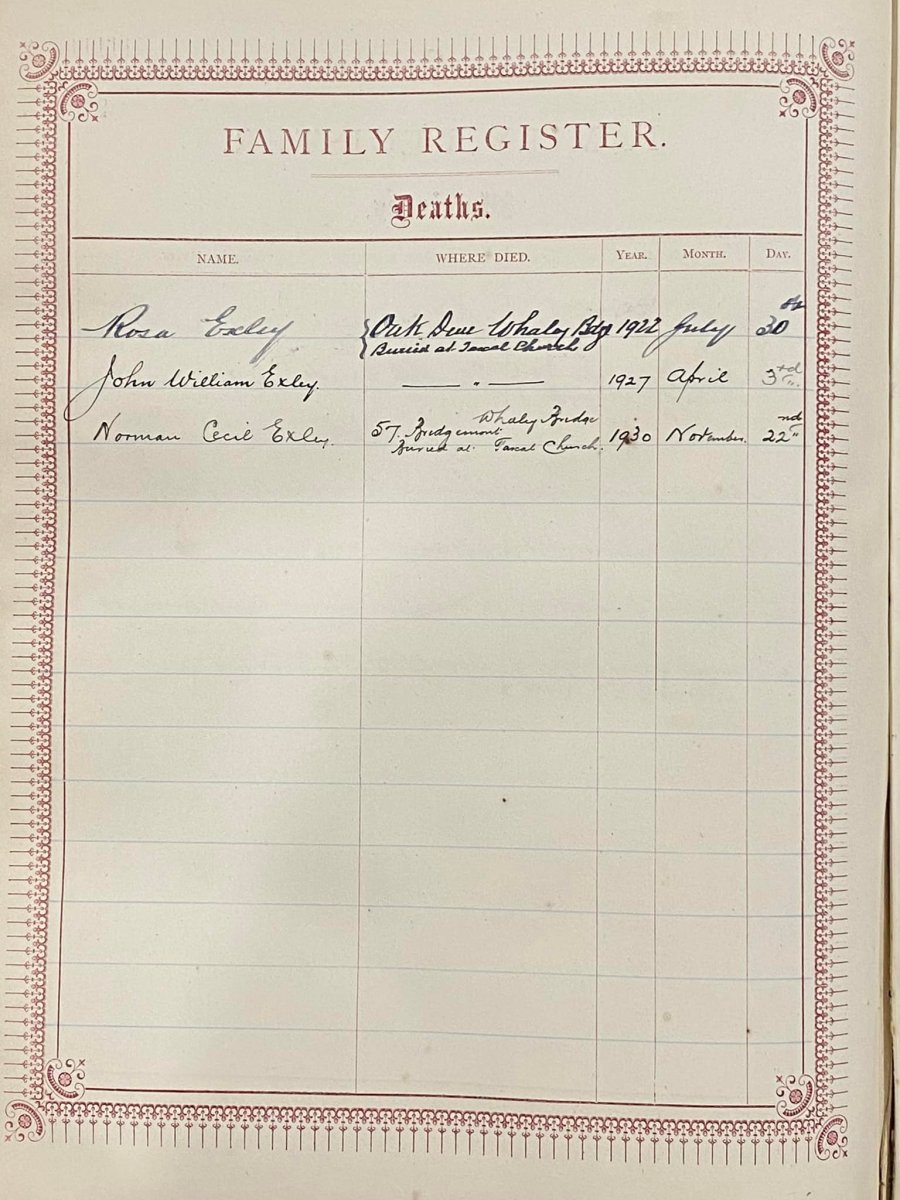 FAMILY REGISTER.
Deaths.
NAME. WHERE DIED. YEAR. MONTH. DAY.
Rosa Exley Oak Dene Whaley Bdge 1922 July 30th
Buried at Taxal Church
John William Exley. — " — 1927 April 3rd
Whaley Bridge
Norman Cecil Exley. 57, Bridgemont 1930 November. 22nd
Buried at Taxal Church.